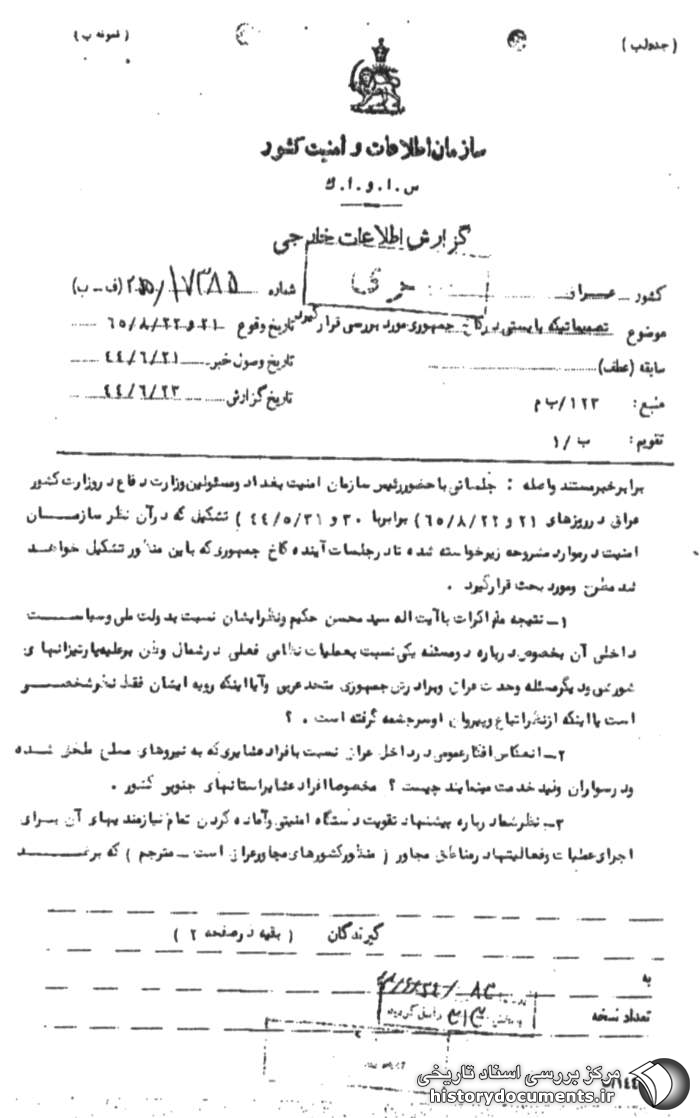 ( جدولب )
( نمونه ب )
سازمان اطلاعات و امنیت کشور
س . ا . و . ا . ک
گزارش اطلاعات خارجی
کشور عراق
شماره (ف – ب)
موضوع تصمیماتیکه بایستی در کاخ جمهوری مورد بررسی قرار گیرد
تاریخ وقوع ۲۱ و ۶۵/۸/۲۲
سابقه (عطف)
تاریخ وصول خبر ۴۴/۶/۲۱
منبع : ۱۲۳/ ب م
تاریخ گزارش ۴۴/۶/۲۳
تقویم : ب /۱
برابر خبر مستند واصله : جلساتی با حضور رئیس سازمان امنیت بغداد و مسئولین وزارت دفاع در وزارت کشور
عراق در روزهای ( ۲۱ و ۶۵/۸/۲۲ برابر با ۳۰ و ۴۴/۵/۳۱ ) تشکیل که در آن نظر سازمان
امنیت در موارد مشروحه زیر خواسته شده تا در جلسات آینده کاخ جمهوری که باین منظور تشکیل خواهد
شد مطرح و مورد بحث قرار گیرد .
۱– نتیجه مذاکرات با آیت اله سید محسن حکیم و نظر ایشان نسبت بدولت ملی و سیاست
داخلی آن بخصوص درباره دو مسئله یکی نسبت بعملیات نظامی فعلی در شمال وطن بر علیه پارتیزانهای
شورشی و دیگر مسئله وحدت عراق و برادرش جمهوری متحد عربی و آیا اینکه رویه ایشان فقط نظر شخصی
است یا اینکه از نظر اتباع و پیروان او سرچشمه گرفته است . ؟
۲– انعکاس افکار عمومی در داخل عراق نسبت بافراد عشایری که به نیروهای مسلح ملحق شده
و در سواران ولید خدمت مینمایند چیست ؟ مخصوصا افراد عشایر استانهای جنوبی کشور .
۳– نظر شما درباره پیشنهاد تقویت دستگاه امنیتی و آماده کردن تمام نیازمندیهای آن برای
اجرای عملیات و فعالیتها در مناطق مجاور ( منظور کشورهای مجاور عراق است – مترجم ) که بر ضد
گیرندگان ( بقیه در صفحه ۲ )
به
تعداد نسخه
مرکز بررسی اسناد تاریخی
historydocuments.ir